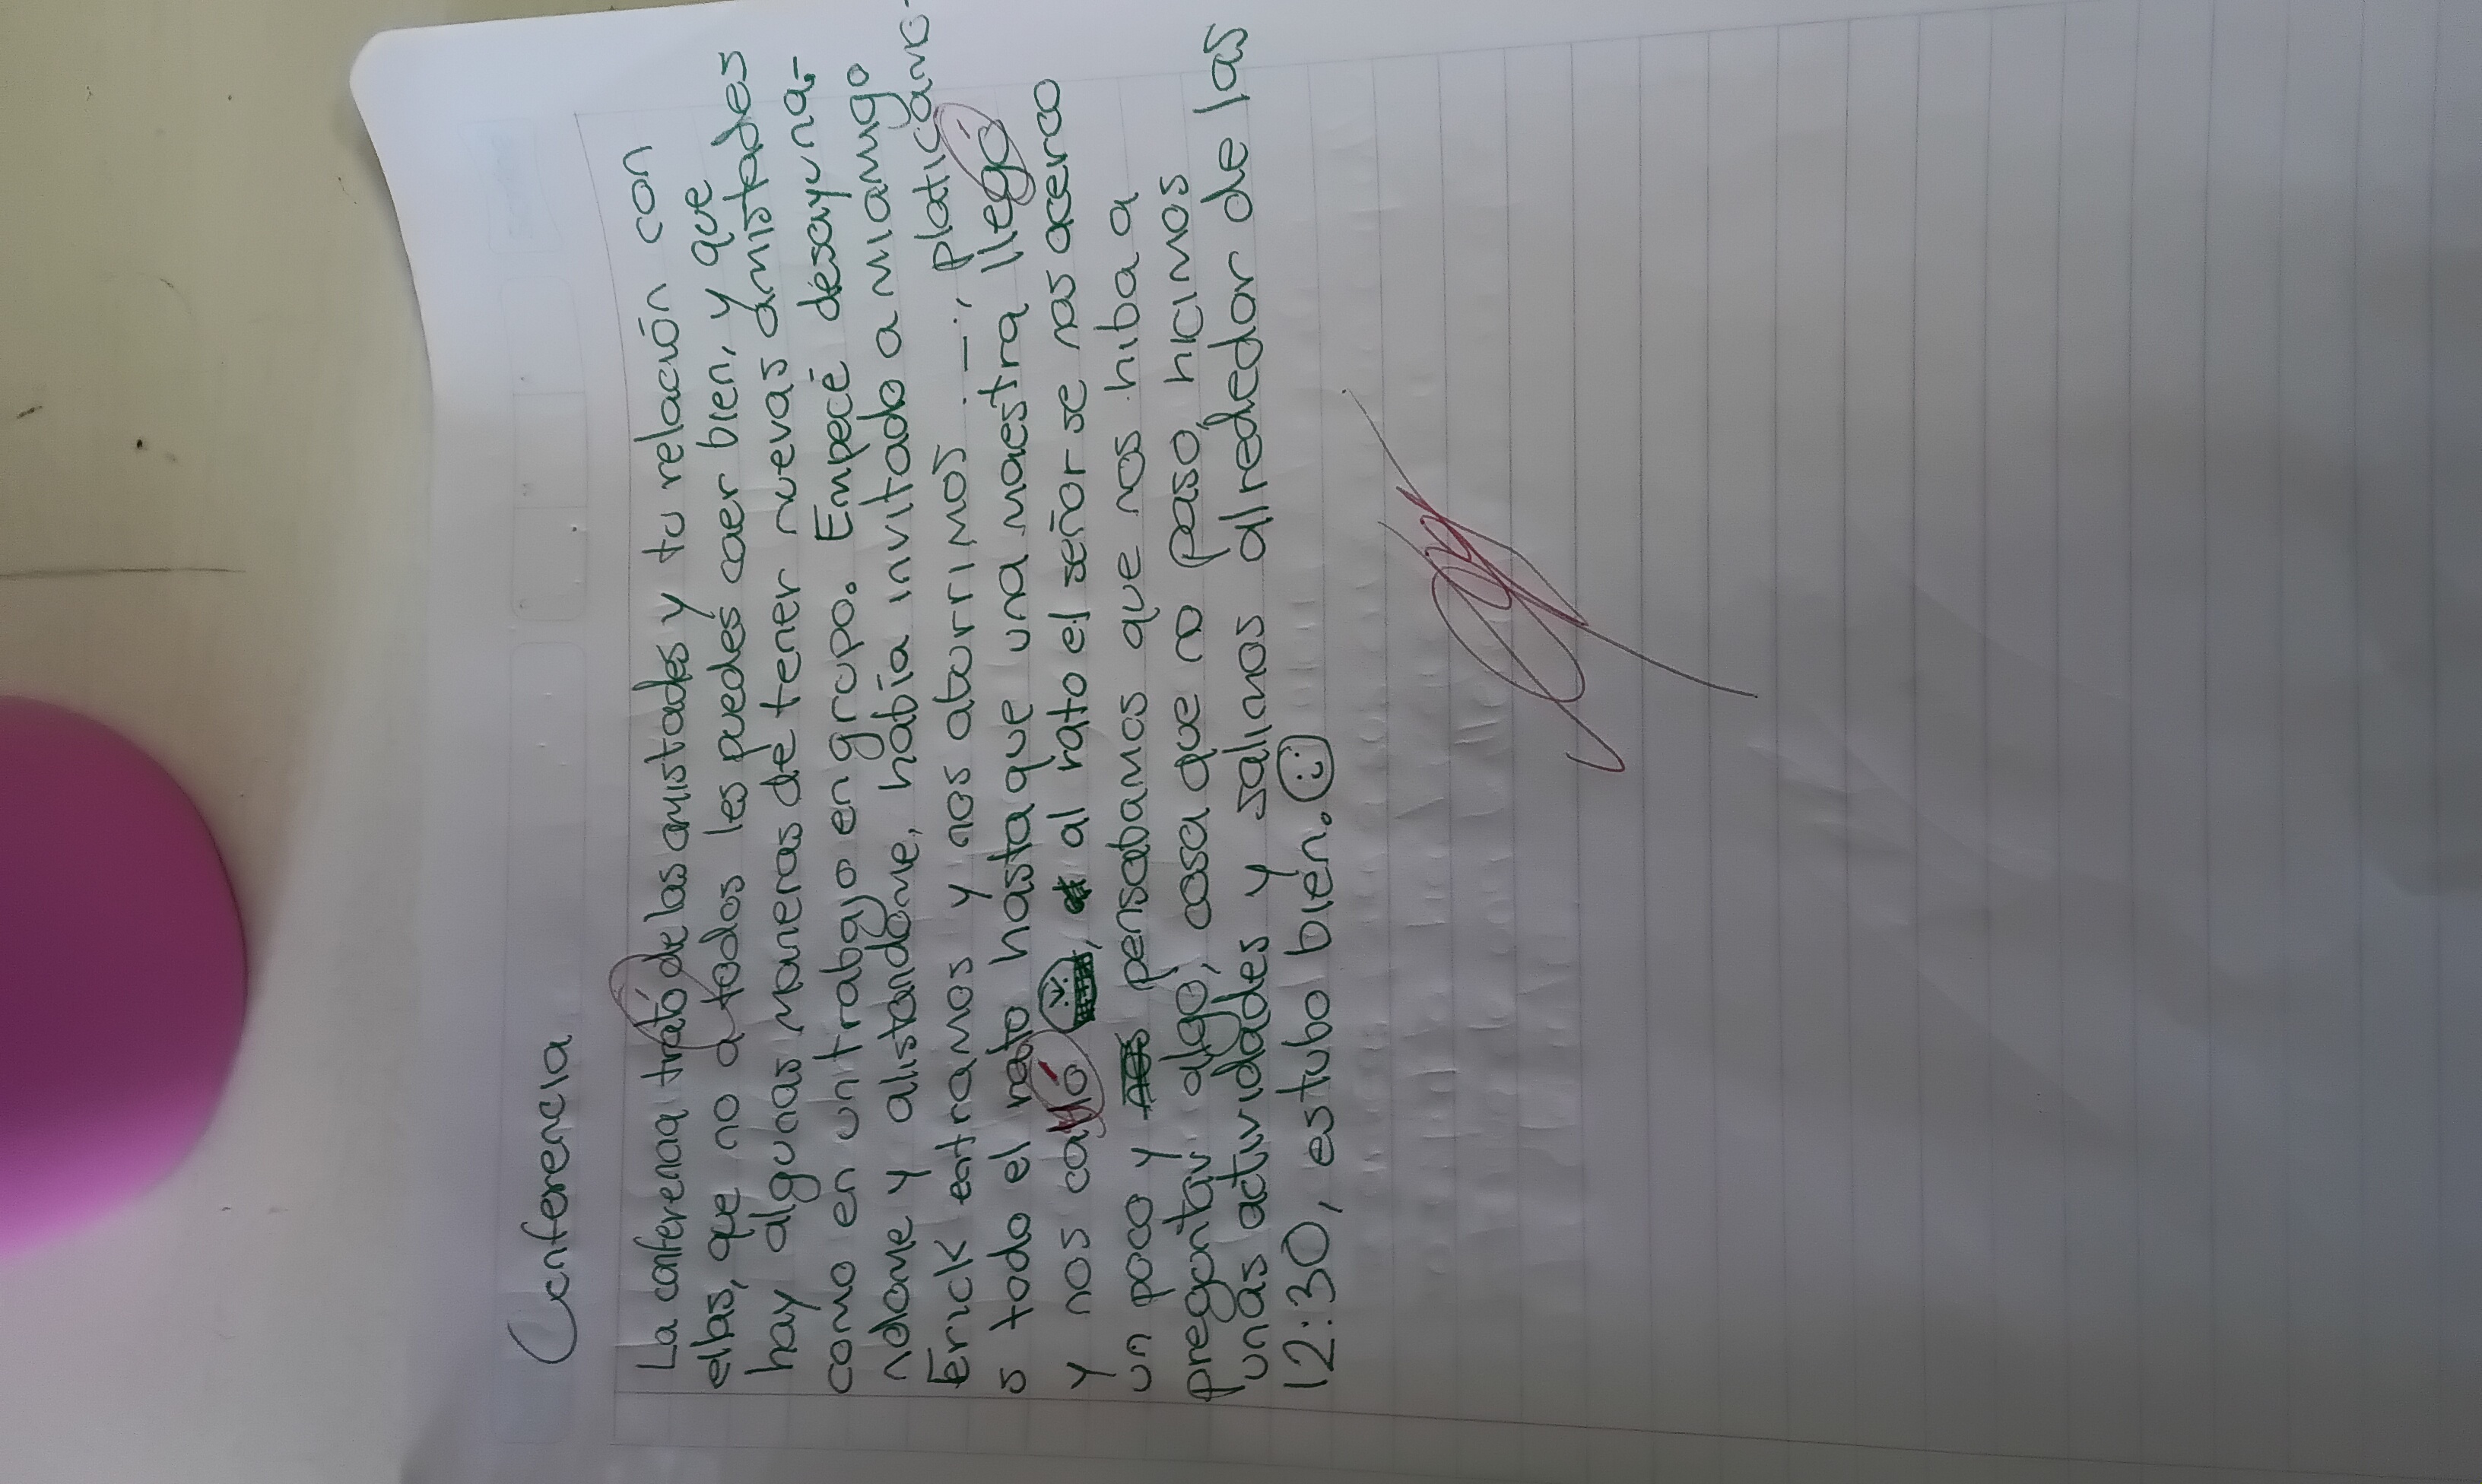 Conferencia
La conferencia trató de las amistades y tu relación con
ellas, que no a todos les puedes caer bien, y que
hay algunas maneras de tener nuevas amistades
como en un trabajo en grupo. Empecé desayuna-
ndome y alistandome, había invitado a mi amigo
Erick entramos y nos aburrimos .-., platicamo-
s todo el rato hasta que una maestra llegó
y nos calló, al rato el señor se nos acerco
un poco y pensabamos que nos hiba a
preguntar algo, cosa que no paso, hicimos
unas actividades y salimos alrededor de las
12:30, estubo bien.